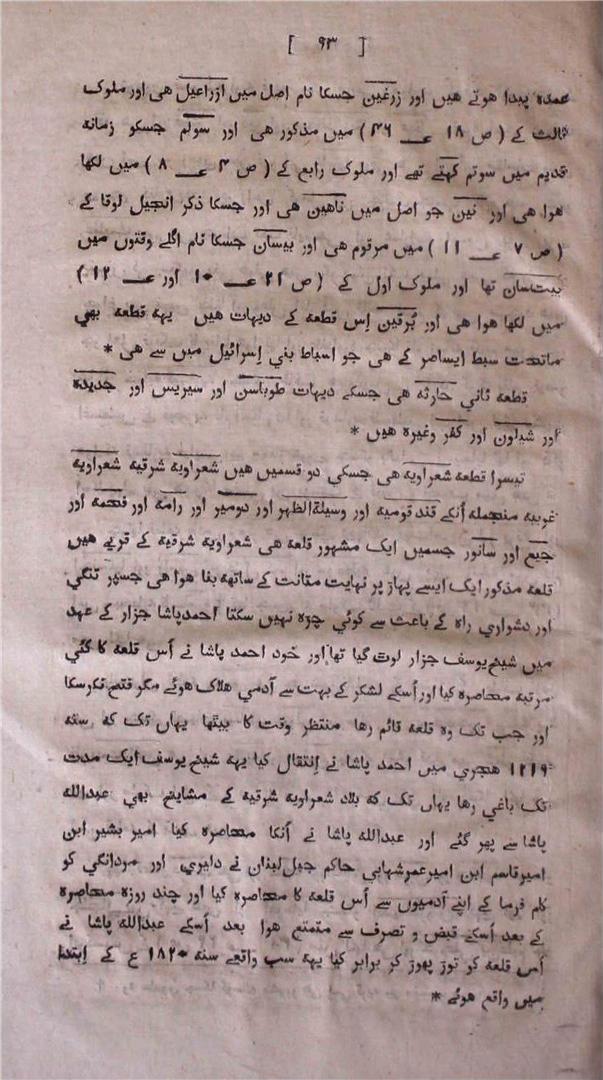 [ ۹۳ ]
عمدہ پیدا هوتے هیں اور زرغین جسکا نام اصل میں ازراعیل هی اور ملوک
ثالث کے ( ص ۱۸ عــ ۴۶ ) میں مذکور هی اور سولم جسکو زمانہ
قدیم میں سوتم کہتے تھے اور ملوک رابع کے ( ص ۴ عــ ۸ ) میں لکھا
هوا هی اور نین جو اصل میں ناهین هی اور جسکا ذکر انجیل لوقا کے
( ص ۷ عــ ۱۱ ) میں مرقوم هی اور بیسان جسکا نام اگلے وقتوں میں
بیت‌سان تھا اور ملوک اول کے ( ص ۲۱ عــ ۱۰ اور عــ ۱۲ )
میں لکھا هوا هی اور بُرقین اِس قطعہ کے دیہات هیں یہہ قطعہ بھی
ماتحت سبط ایساصر کے هی جو اسباط بني اِسرائیل میں سے هی *
قطعہ ثاني حارثہ هی جسکے دیہات طوباسن اور سیریس اور جدیدہ
اور شیلون اور کفر وغیرہ هیں *
تیسرا قطعہ شعراویہ هی جسکي دو قسمیں هیں شعراویہ شرقیہ شعراویہ
غوبیہ منجملہ اُنکے قند قومیہ اور وسیلةالظهر اور دومیر اور رامہ اور فحمہ اور
جبع اور سانور جسمیں ایک مشہور قلعہ هی شعراویہ شرقیہ کے قریے هیں
قلعہ مذکور ایک ایسے پہاڑ پر نہایت متانت کے ساتھہ بنا هوا هی جسپر تنگي
اور دشواري راہ کے باعث سے کوئي چڑہ نہیں سکتا احمدپاشا جزار کے عہد
میں شیخ یوسف جزار لوٹ گیا تھا اور خود احمد پاشا نے اُس قلعہ کا کئي
مرتبہ محاصرہ کیا اور اُسکے لشکر کے بہت سے آدمي هلاک هوئے مگر فتح نکرسکا
اور جب تک وہ قلعہ قائم رها منتظر وقت کا بیٹھا یہاں تک کہ سنہ
۱۲۱۹ هجري میں احمد پاشا نے اِنتقال کیا یہہ شیخ یوسف ایک مدت
تک باغي رها یہاں تک کہ بلاد شعراویہ شرقیہ کے مشایخ بھي عبدالله
پاشا سے پھر گئے اور عبدالله پاشا نے اُنکا محاصرہ کیا امیر بشیر ابن
امیرقاسم ابن امیرعمرشہابي حاکم جبل‌لبنان نے دلیري اور مردانگي کو
کام فرما کے اپنے آدمیوں سے اُس قلعہ کا محاصرہ کیا اور چند روزہ محاصرہ
کے بعد اُسکے قبض و تصرف سے متمتع هوا بعد اُسکے عبدالله پاشا نے
اُس قلعہ کو توڑ پھوڑ کر برابر کیا یہہ سب واقعے سنہ ۱۸۲۰ ع کے اِبتدا
میں واقع هوئے *